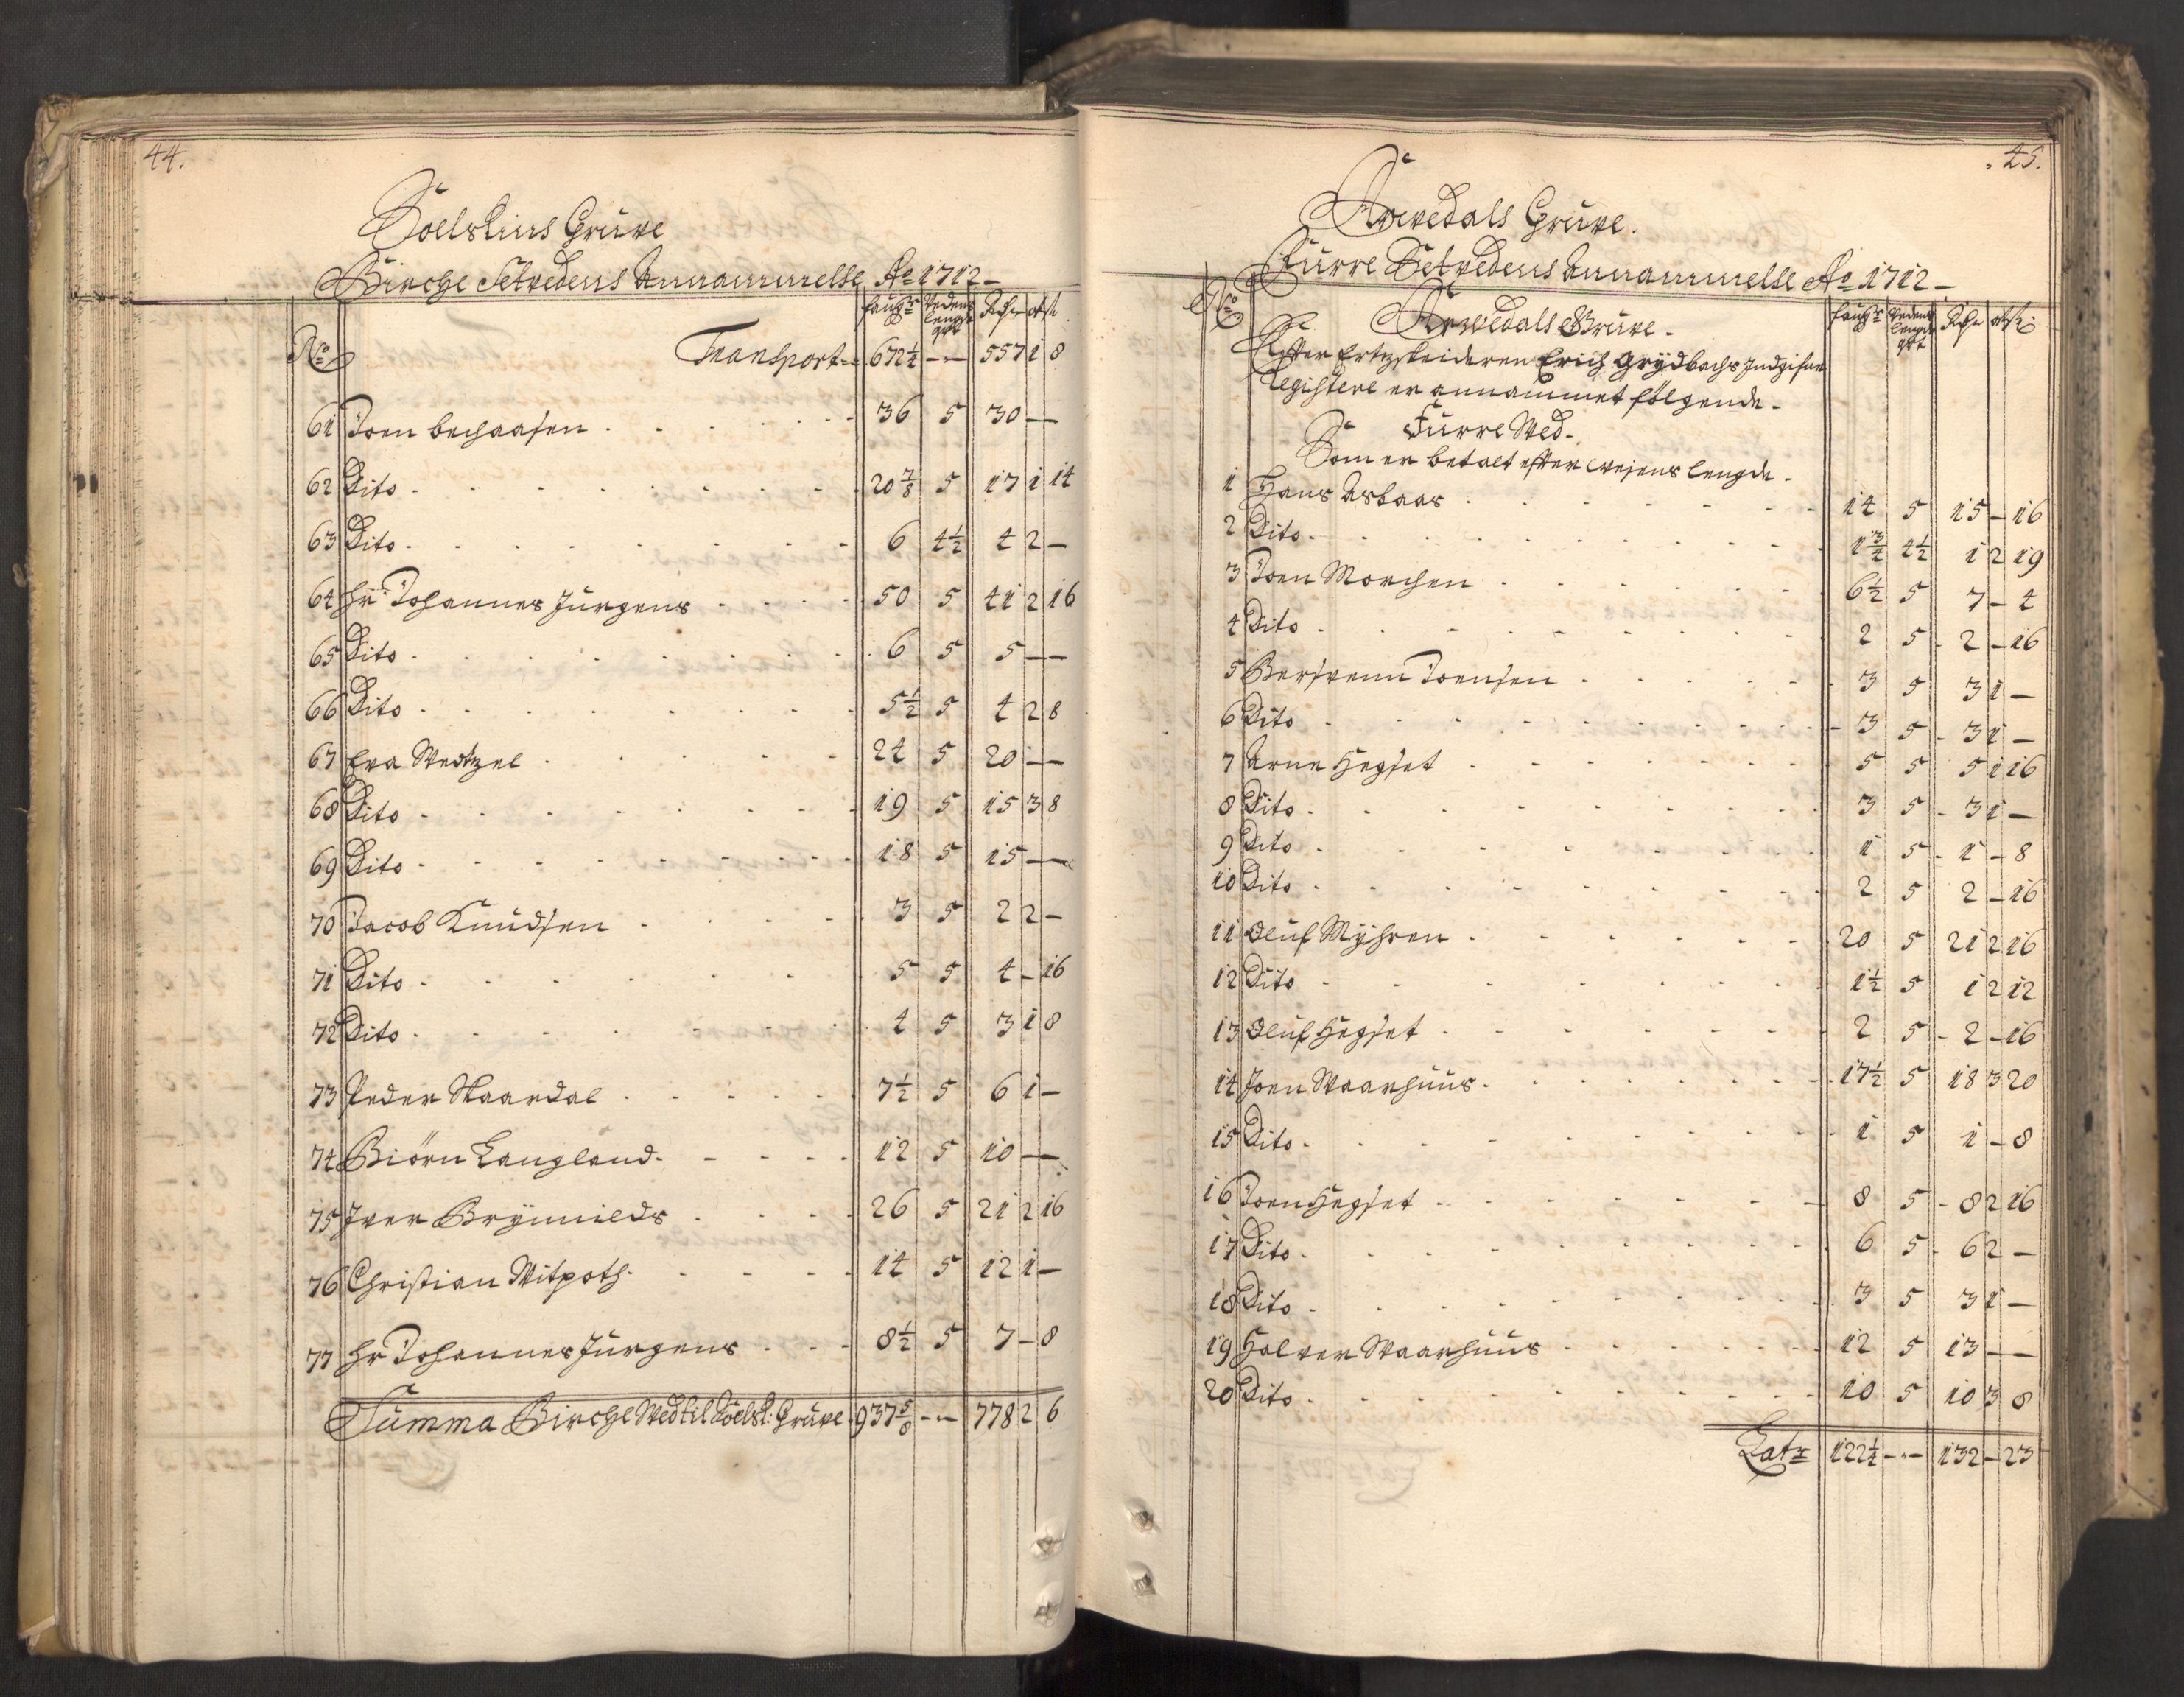 44.
Soelskins Grüve
Birche Setvedens Annammelse Ao 1712
faufr Vedens lengde qrt Rdr ort ß
No Transport 672½ - - 557 1 8
61 Joen bechaasen 36 5 30 —
62 Dito 20⅞ 5 17 1 14
63 Dito 6 4½ 4 2 —
64 Hr Johannes Jürgens 50 5 41 2 16
65 Dito 6 5 5 — —
66 Dito 5½ 5 4 2 8
67 Eva Wentzel 24 5 20 — —
68 Dito 19 5 15 3 8
69 Dito 18 5 15 — —
70 Jacob Knüdsen 3 5 2 2 —
71 Dito 5 5 4 — 16
72 Dito 4 5 3 1 8
73 Peder Skaardal 7½ 5 6 1 —
74 Biörn Langland 12 5 10 — —
75 Iver Brÿnnilds 26 5 21 2 16
76 Christian Witpoth 14 5 12 1 —
77 Hr Johannes Jürgens 8½ 5 7 — 8
Summa Birche Wed til Soelsk: Grüve 937⅝ - - 778 2 6
45.
Arvedals Grüve.
Fürre Setvedens Annammelse Ao 1712
No Arvedals Grüve. faufr Vedens lengde qrt Rdr ort ß
Efter Ertzskeideren Erich Grÿdbachs Indgifne
Registere er annammet fölgende.
Fürre Wed.
Som er betalt efter Vejens lengde.
1 Hans Asbaas 14 5 15 — 16
2 Dito 1¾ 4½ 1 2 19
3 Joen Morchen 6½ 5 7 — 4
4 Dito 2 5 2 — 16
5 Bersvenn Joensen 3 5 3 1 —
6 Dito 3 5 3 1 —
7 Arne Hegset 5 5 5 1 16
8 Dito 3 5 3 1 —
9 Dito 1 5 1 — 8
10 Dito 2 5 2 — 16
11 Oluf Mÿhren 20 5 21 2 16
12 Dito 1½ 5 1 2 12
13 Oluf Hegset 2 5 2 — 16
14 Joen Waarhüüs 17½ 5 18 3 20
15 Dito 1 5 1 — 8
16 Joen Hegset 8 5 8 2 16
17 Dito 6 5 6 2 —
18 Dito 3 5 3 1 —
19 Halver Waarhüüs 12 5 13 — —
20 Dito 10 5 10 3 8
Latr 122¼ - - 132 — 23